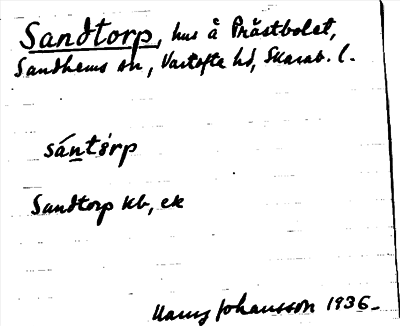 Sandtorp, hus å Prästbolet,
Sandhems sn, Vartofte hd, Skarab. l.
sántòrp
Sandtorp kb, ek
Harry Johansson 1936